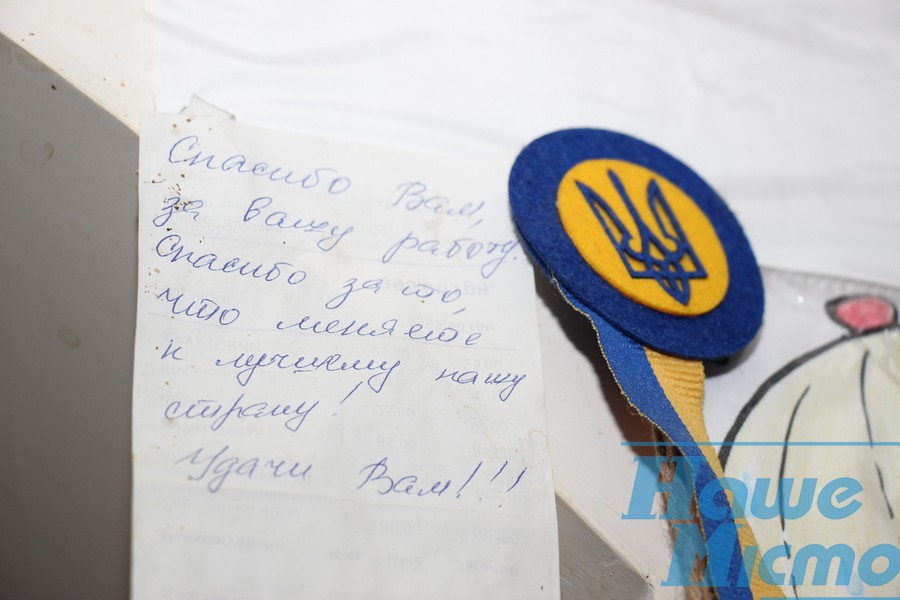 Спасибо Вам,
за вашу работу.
Спасибо за то,
что меняете
к лучшему нашу
страну!
Удачи Вам!!!
Наше
Місто